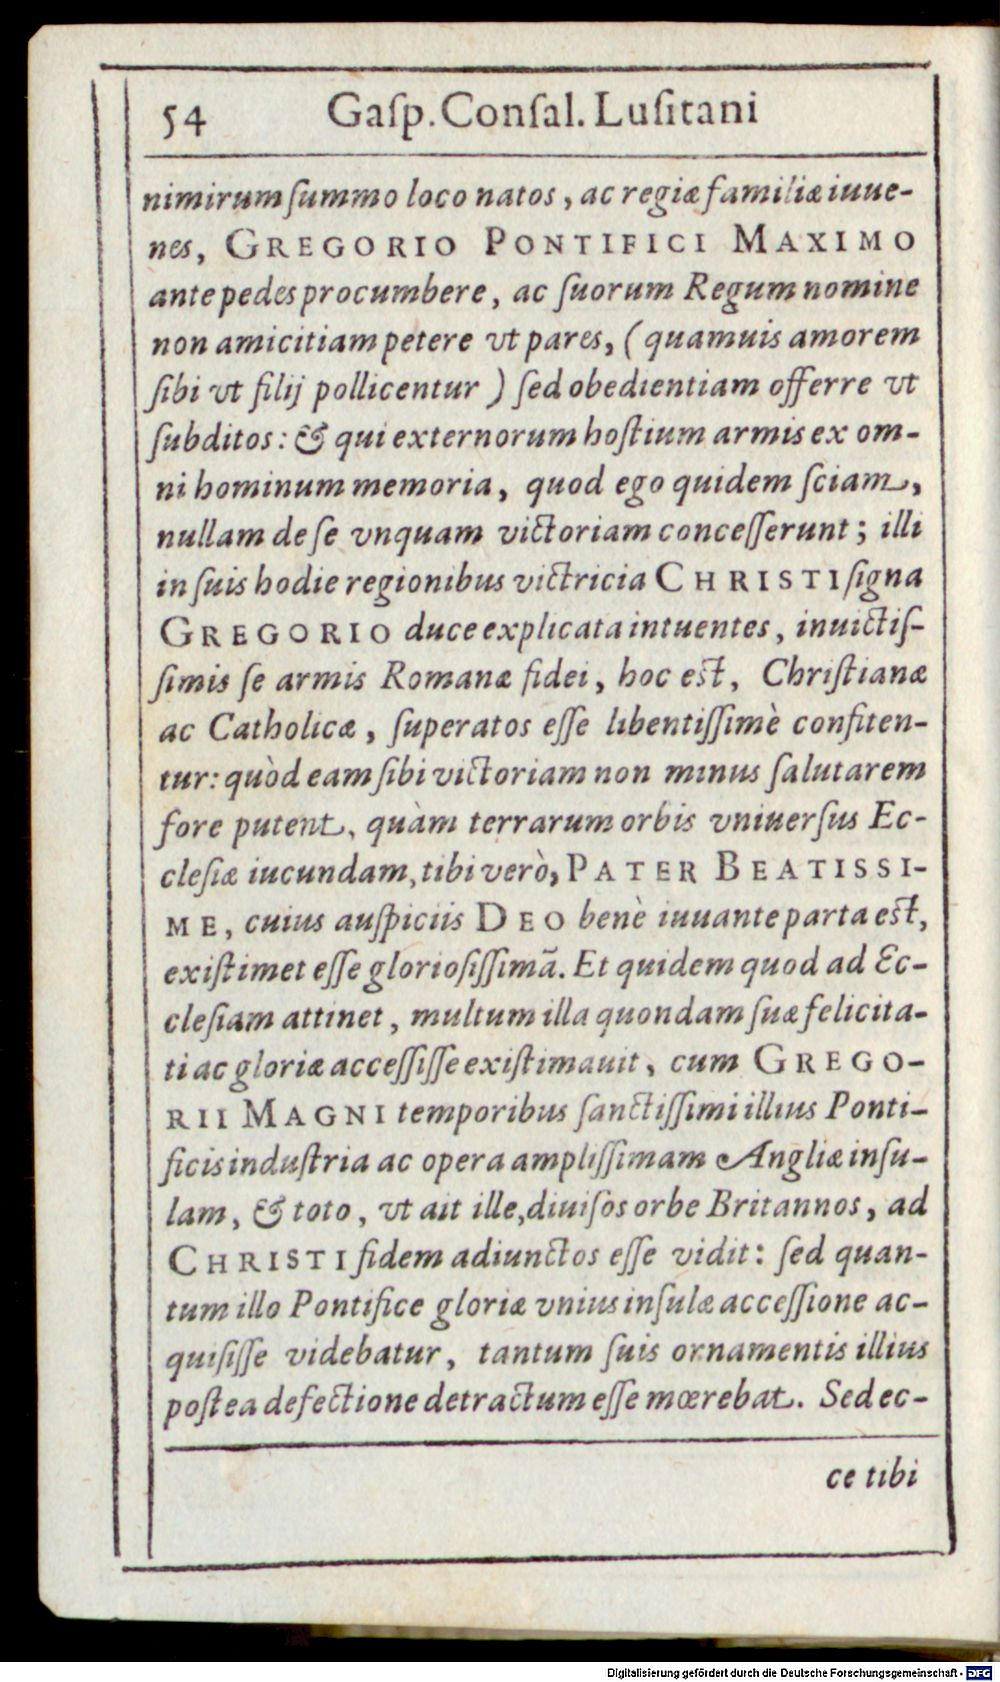 54 Gaſp. Conſal. Luſitani
nimirum ſummo loco natos, ac regiæ familiæ iuue-
nes, GREGORIO PONTIFICI MAXIMO
ante pedes procumbere, ac ſuorum Regum nomine
non amicitiam petere vt pares, (quamuis amorem
ſibi vt filij pollicentur) ſed obedientiam offerre vt
ſubditos: & qui externorum hoſtium armis ex om-
ni hominum memoria, quod ego quidem ſciam,
nullam de ſe vnquam victoriam conceſſerunt; illi
in ſuis hodie regionibus victricia CHRISTI ſigna
GREGORIO duce explicata intuentes, inuictiſ-
ſimis ſe armis Romanæ fidei, hoc eſt, Chriſtianæ
ac Catholicæ, ſuperatos eſſe libentiſſimè confiten-
tur: quòd eam ſibi victoriam non minus ſalutarem
fore putent, quàm terrarum orbis vniuerſus Ec-
cleſiæ iucundam, tibi verò, PATER BEATISSI-
ME, cuius auſpiciis DEO benè iuuante parta eſt,
exiſtimet eſſe glorioſiſſimã. Et quidem quod ad Ec-
cleſiam attinet, multum illa quondam ſuæ felicita-
ti ac gloriæ acceſſiſſe exiſtimauit, cum GREGO-
RII MAGNI temporibus ſanctiſſimi illius Ponti-
ficis induſtria ac opera ampliſſimam Angliæ inſu-
lam, & toto, vt ait ille, diuiſos orbe Britannos, ad
CHRISTI fidem adiunctos eſſe vidit: ſed quan-
tum illo Pontifice gloriæ vnius inſulæ acceſſione ac-
quiſiſſe videbatur, tantum ſuis ornamentis illius
poſtea defectione detractum eſſe mœrebat. Sed ec-
ce tibi
Digitalisierung gefördert durch die Deutsche Forschungsgemeinschaft - DFG